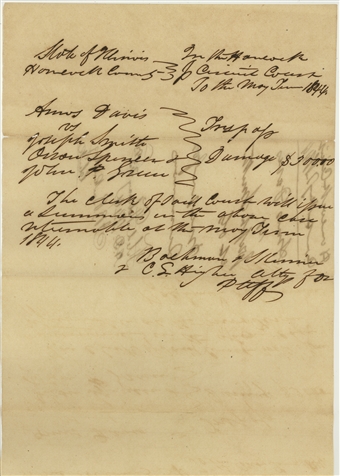 State of Illinois In the Hancock
Hancock County Circuit Court
To the May Term 1844
Amos Davis
vs Trespass
Joseph Smith
Orson Spencer & Damage $3000.00
John P. Green
The clerk of said Court will issue
a Summons in the above case
returnable at the May Term
1844.
Backman & Skinner
& C. L. Higbee Attys for
Plff